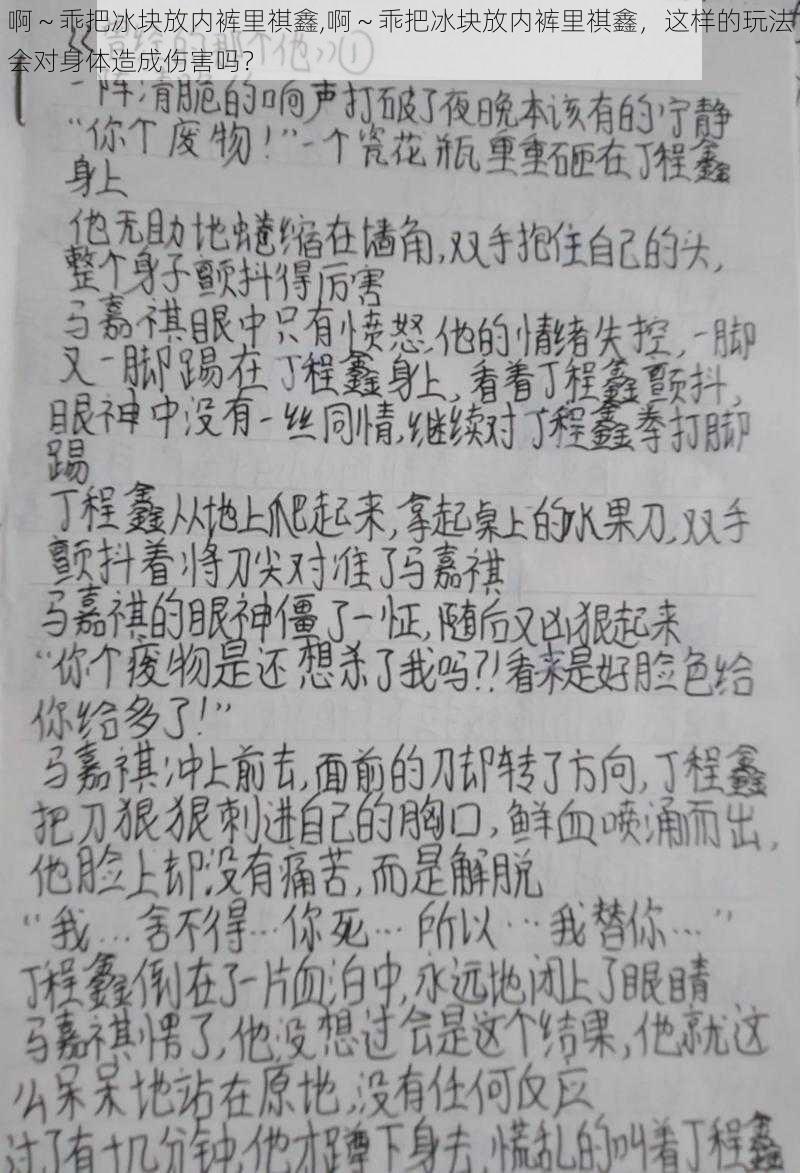 啊～乖把冰块放内裤里祺鑫,啊～乖把冰块放内裤里祺鑫，这样的玩法
会对身体造成伤害吗？
一阵清脆的响声打破了夜晚本该有的宁静
“你个废物！”一个瓷花瓶重重砸在丁程鑫
身上
他无助地蜷缩在墙角,双手抱住自己的头,
整个身子颤抖得厉害
马嘉祺眼中只有愤怒,他的情绪失控,一脚
又一脚踢在丁程鑫身上,看着丁程鑫颤抖,
眼神中没有一丝同情,继续对丁程鑫拳打脚
踢
丁程鑫从地上爬起来,拿起桌上的水果刀,双手
颤抖着将刀尖对准了马嘉祺
马嘉祺的眼神僵了一怔,随后又凶狠起来
“你个废物是还想杀了我吗?!看来是好脸色给
你给多了!”
马嘉祺冲上前去,面前的刀却转了方向,丁程鑫
把刀狠狠刺进自己的胸口,鲜血喷涌而出,
他脸上却没有痛苦,而是解脱
“我…舍不得…你死…所以…我替你…”
丁程鑫倒在了一片血泊中,永远地闭上了眼睛
马嘉祺愣了,他没想过会是这个结果,他就这
么呆呆地站在原地,没有任何反应
过了有十几分钟,他才蹲下身去,慌乱的叫着丁程鑫